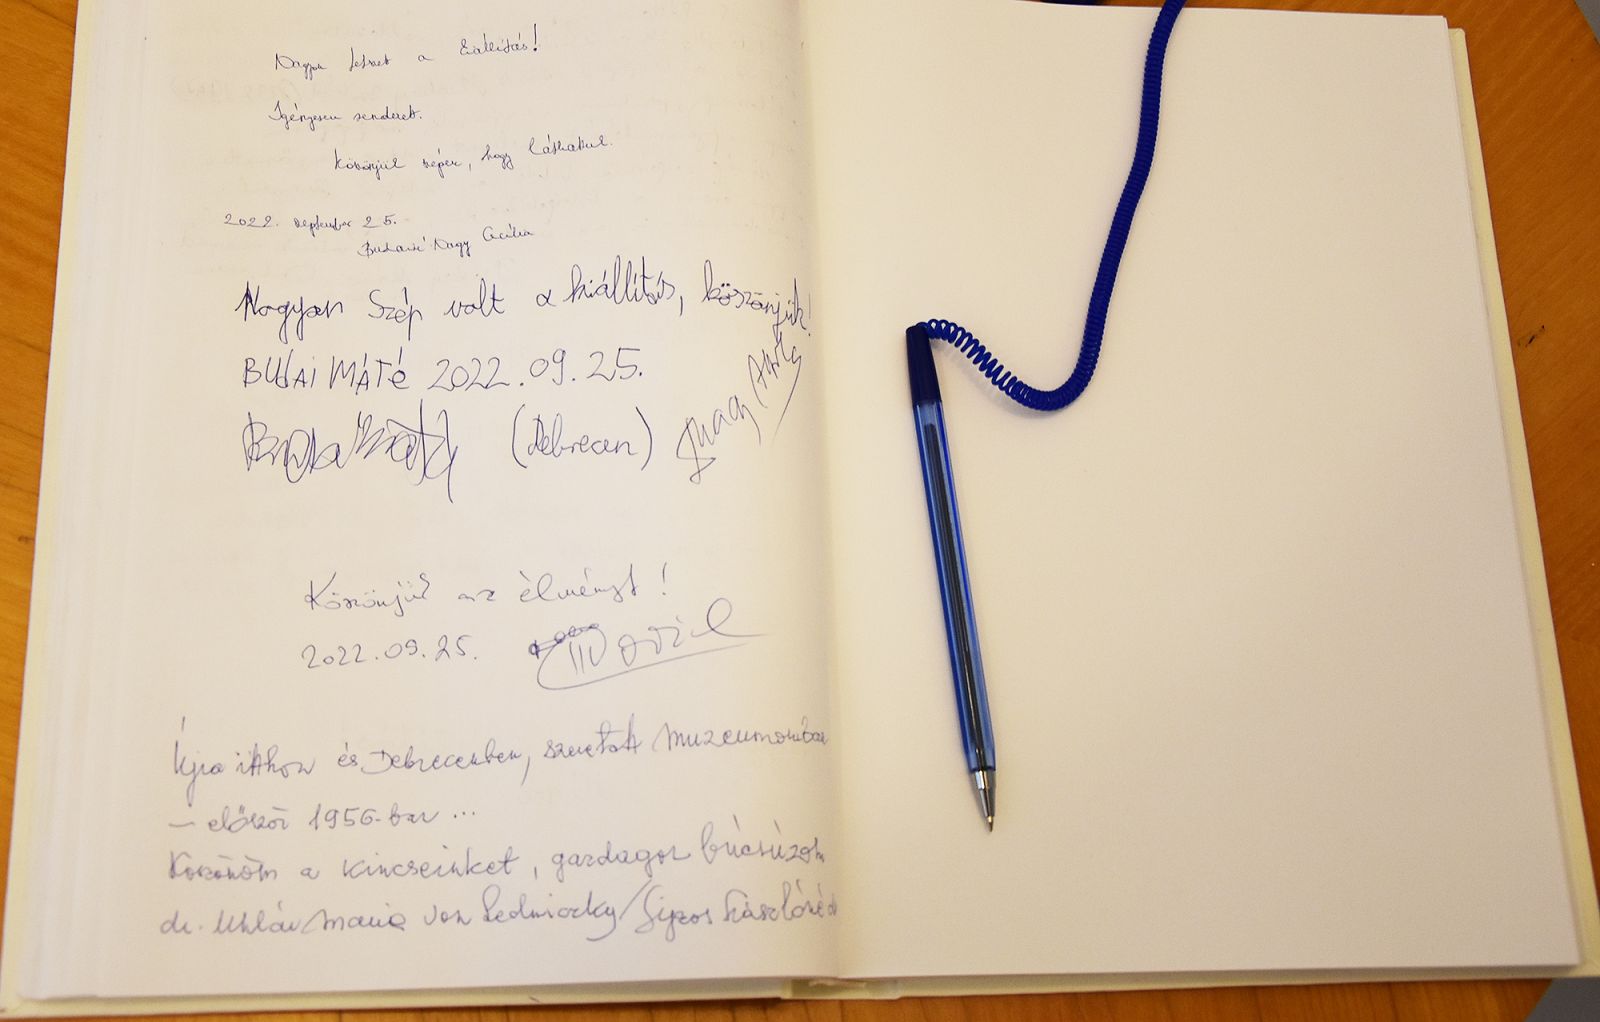 Nagyon tetszett a kiállítás!
Igényesen rendezett.
Köszönjük szépen, hogy láthattuk.
2022. szeptember 25.
Budainé Nagy Cecília
Nagyon szép volt a kiállítás, köszönjük!
BUDAI MÁTÉ 2022.09.25.
(Debrecen)
Köszönjük az élményt!
2022.09.25.
Újra itthon és Debrecenben, szeretett múzeumomban
– először 1956-ban ...
Köszönöm a kincseinket, gazdagon búcsúzom
dr. Uhlár Mária von Ledniczky/Sipos Lászlóné dr